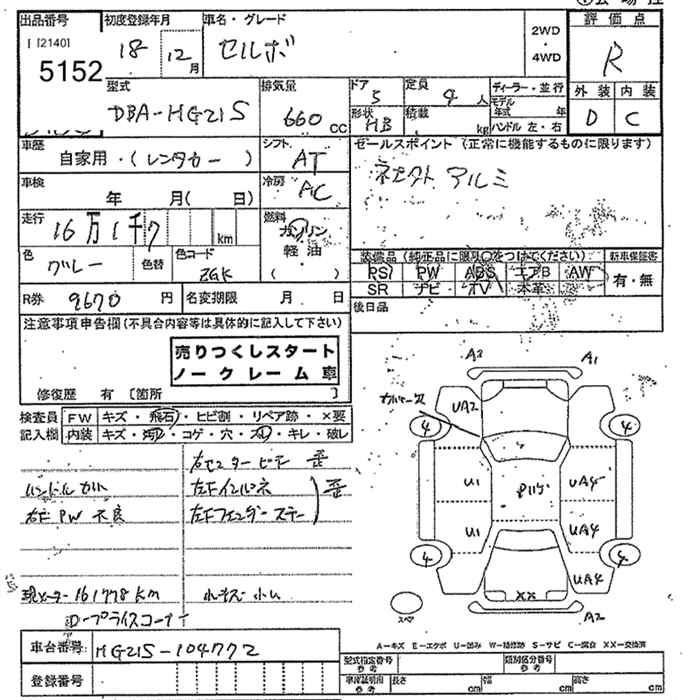 出品番号 初度登録年月 車名・グレード 評価点
[ [2140]
5152 18年 12月 セルボ 2WD・4WD R
型式 排気量 ドア 定員 ディーラー・並行 外装 内装
DBA-HG21S 660 CC 5 4人 モデル年式 年 D C
形状 HB 積載 kg ハンドル 左・右
車歴 自家用・(レンタカー) シフト AT セールスポイント (正常に機能するものに限ります)
車検 年 月(日) 冷房 AC アルミ
走行 16万1千 km 燃料 ガソリン 軽油 ( )
装備品 (純正品に限り○をつけてください) 新車保証書
色 グレー 色替 色コード ZGK
PS PW ABS エアB AW 有・無
SR ナビ TV 本革
R券 9670円 名変期限 月 日 後日品
注意事項申告欄(不具合内容等は具体的に記入して下さい)
売りつくしスタート
ノークレーム車
修復歴 有 [箇所 ]
検査員記入欄 FW キズ・飛石・ヒビ割・リペア跡・×要
内装 キズ・汚れ・コゲ・穴・スレ・キレ・破レ
右センターピラー 歪
左Fインパネ 歪
右F PW 不良 左Fフェンダーステー
現メーター 161778km
ロープライスコーナー
車台番号 HG21S-104772
登録番号
A3 A1
UA2
4 4
U1 UA4
U1 UA4
4 4
UA4
XX
スペア A2
A-キズ E-エクボ U-凹み W-補修跡 S-サビ C-腐食 XX-交換済
型式指定番号 参考 類別区分番号 参考
車庫証明用 参考 長さ cm 幅 cm 高さ cm